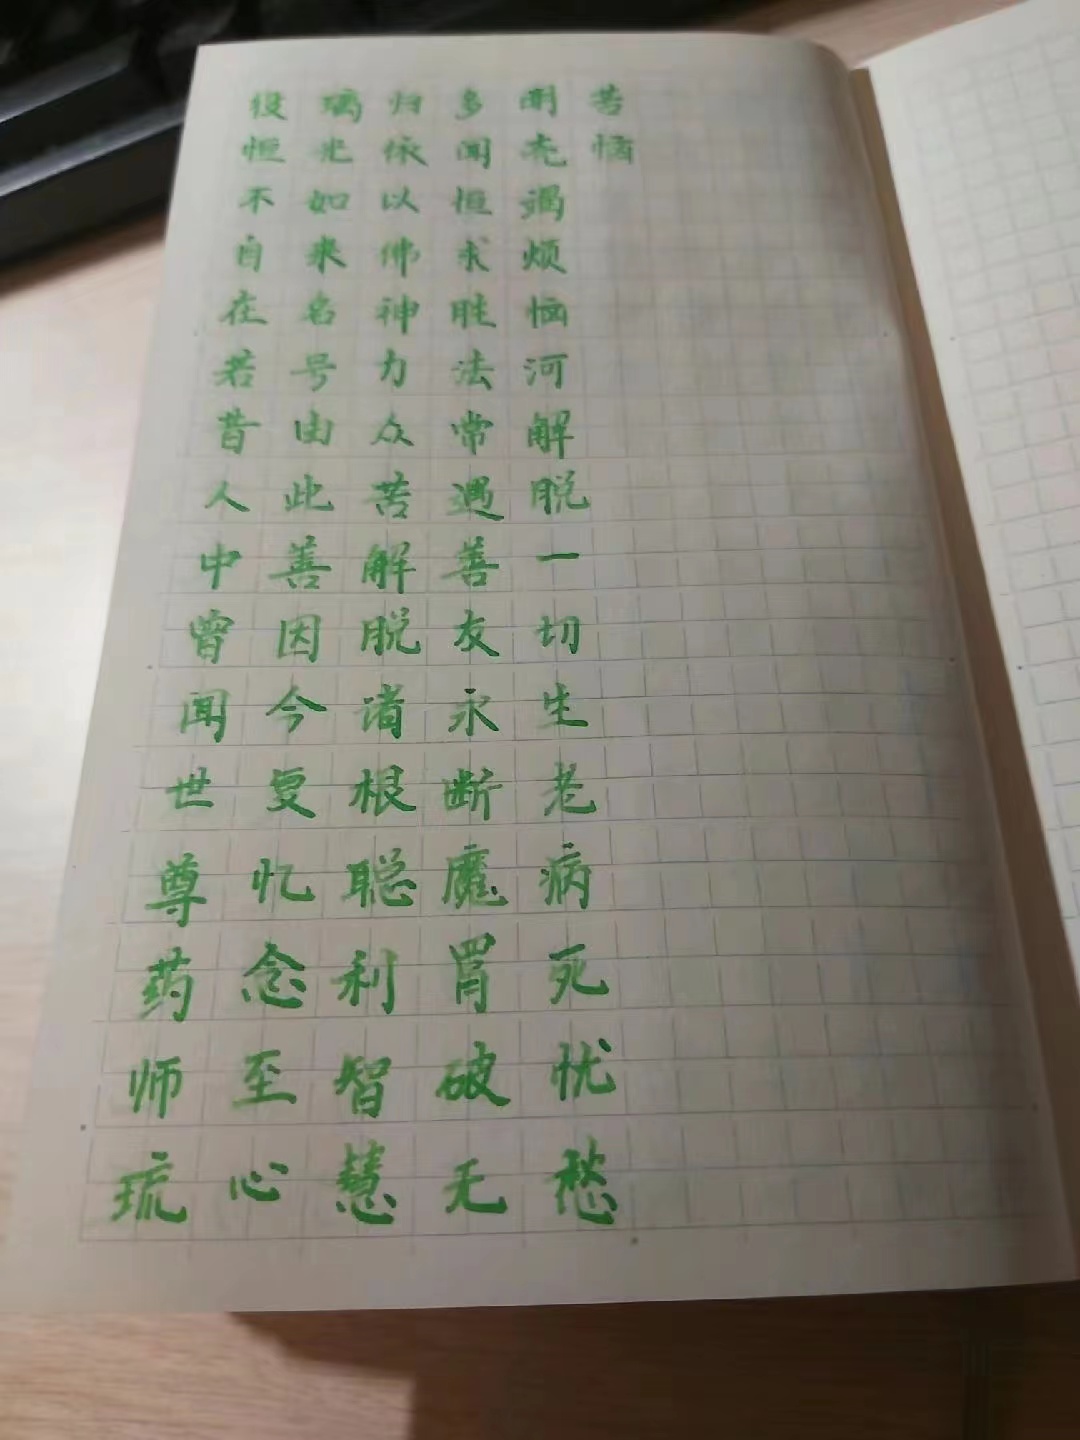 役恒不自在若昔人中曾闻世尊药师琉
璃光如来名号由此善因今复忆念至心
归依以佛神力众苦解脱诸根聪利智慧
多闻恒求胜法常遇善友永断魔罥破无
明壳竭烦恼河解脱一切生老病死忧愁
苦恼